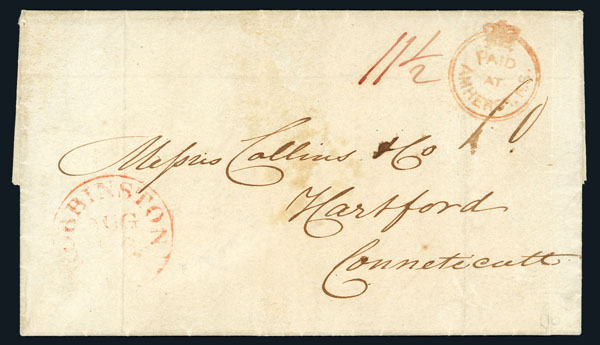 11½
PAID
AT
AMHERST. N.S.
Messrs Collins & Co
Hartford
Conneticutt
OBBINSTON
AUG